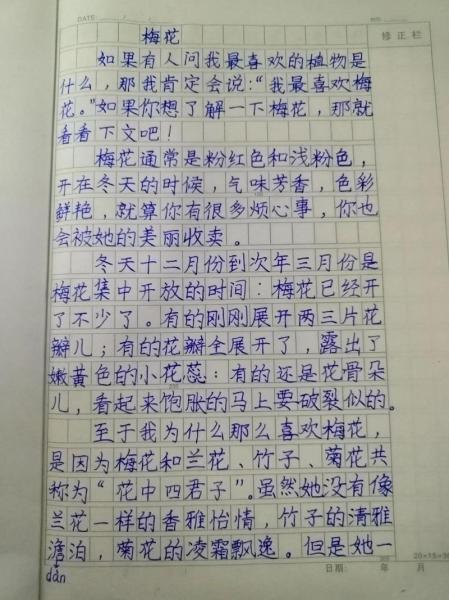 DATE
梅花
修正栏
如果有人问我最喜欢的植物是
什么，那我肯定会说：“我最喜欢梅
花。”如果你想了解一下梅花，那就
看看下文吧！
梅花通常是粉红色和浅粉色，
开在冬天的时候，气味芳香，色彩
鲜艳，就算你有很多烦心事，你也
会被她的美丽收卖。
冬天十二月份到次年三月份是
梅花集中开放的时间：梅花已经开
了不少了。有的刚刚展开两三片花
瓣儿；有的花瓣全展开了，露出了
嫩黄色的小花蕊：有的还是花骨朵
儿，看起来饱胀的马上要破裂似的。
至于我为什么那么喜欢梅花，
是因为梅花和兰花、竹子、菊花共
称为“花中四君子”。虽然她没有像
兰花一样的香雅怡情，竹子的清雅
澹泊，菊花的凌霜飘逸。但是她一
dàn
日期： 年 月